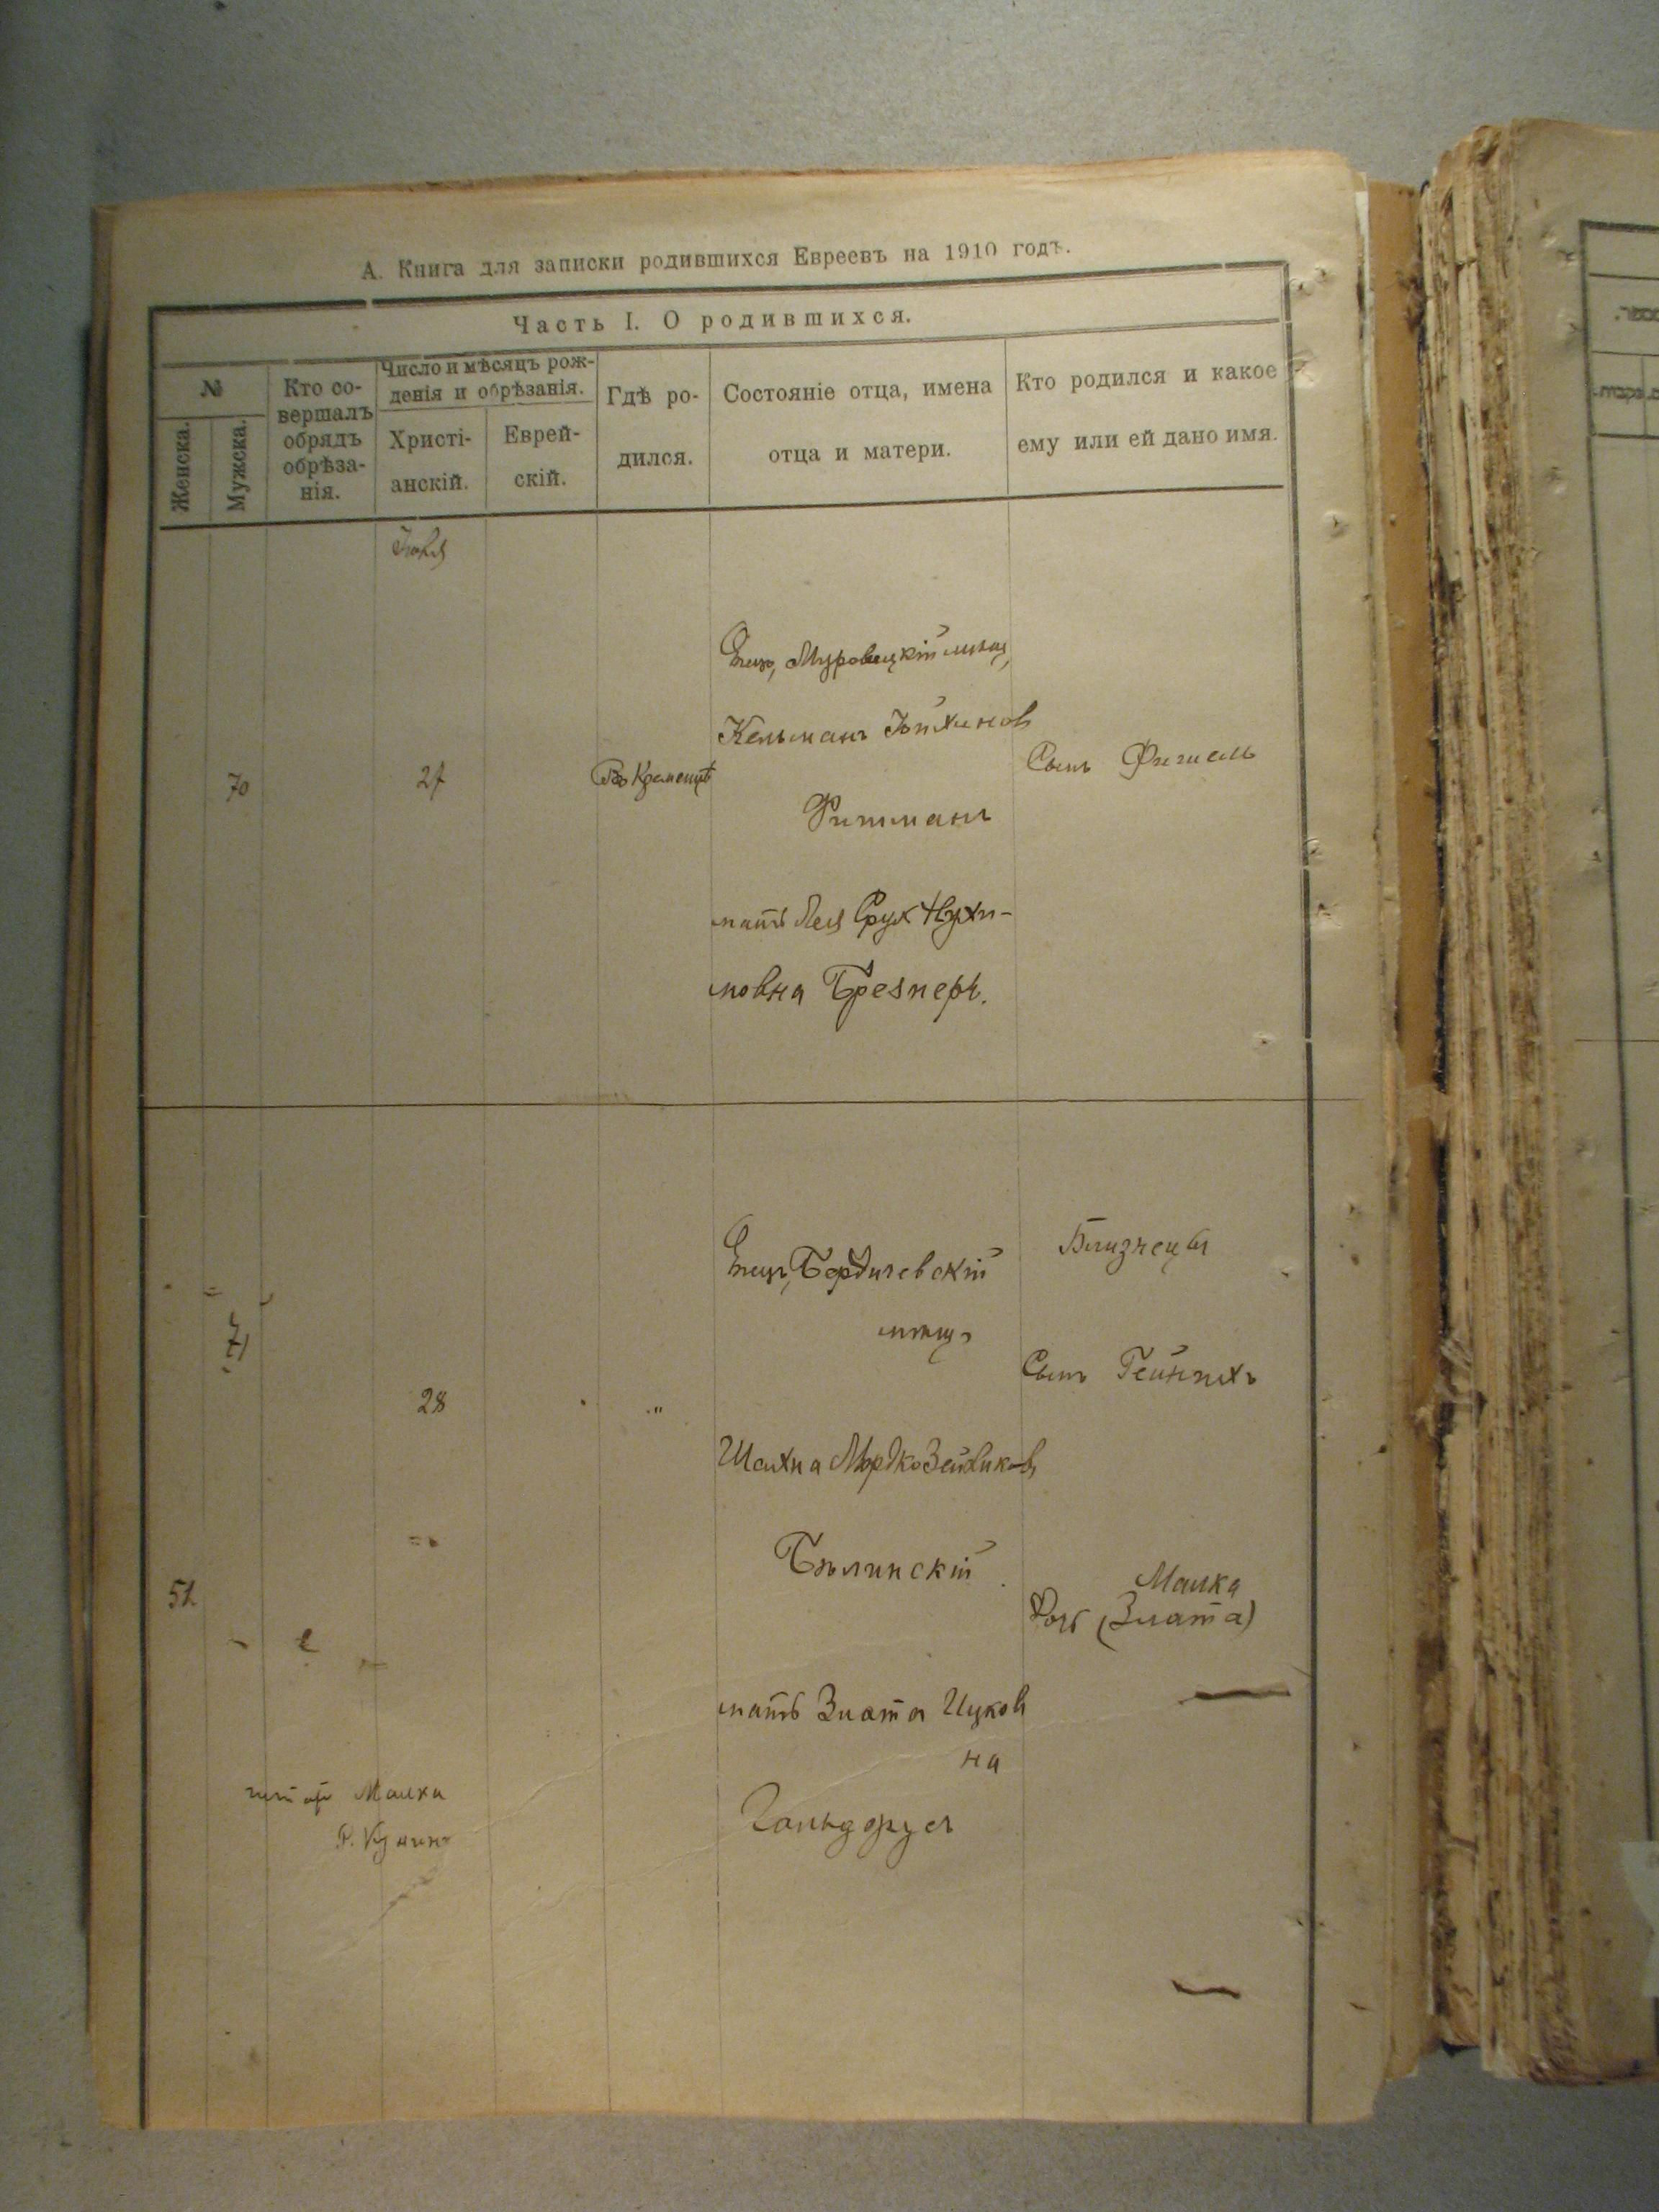 А. Книга для записки родившихся Евреевъ на 1910 годъ.
Часть I. О родившихся.
№
Женска.
Мужска.
Кто со-
вершалъ
обрядъ
обрѣза-
нія.
Число и мѣсяцъ рож-
денія и обрѣзанія.
Христі-
анскій.
Еврей-
скій.
Гдѣ ро-
дился.
Состояніе отца, имена
отца и матери.
Кто родился и какое
ему или ей дано имя.
70
27
Кременцѣ
Отецъ,
Кельманъ
мать Лея
мовна Брезнеръ.
Сынъ Фишель
71
28
"
Отецъ, Бердичевскій
мѣщ.
Шахна Мордко
Бѣлинскій
мать Злата Ицков
на
Близнецы
Сынъ Гейнихъ
51.
Малка
Дочь (Злата)
Малка